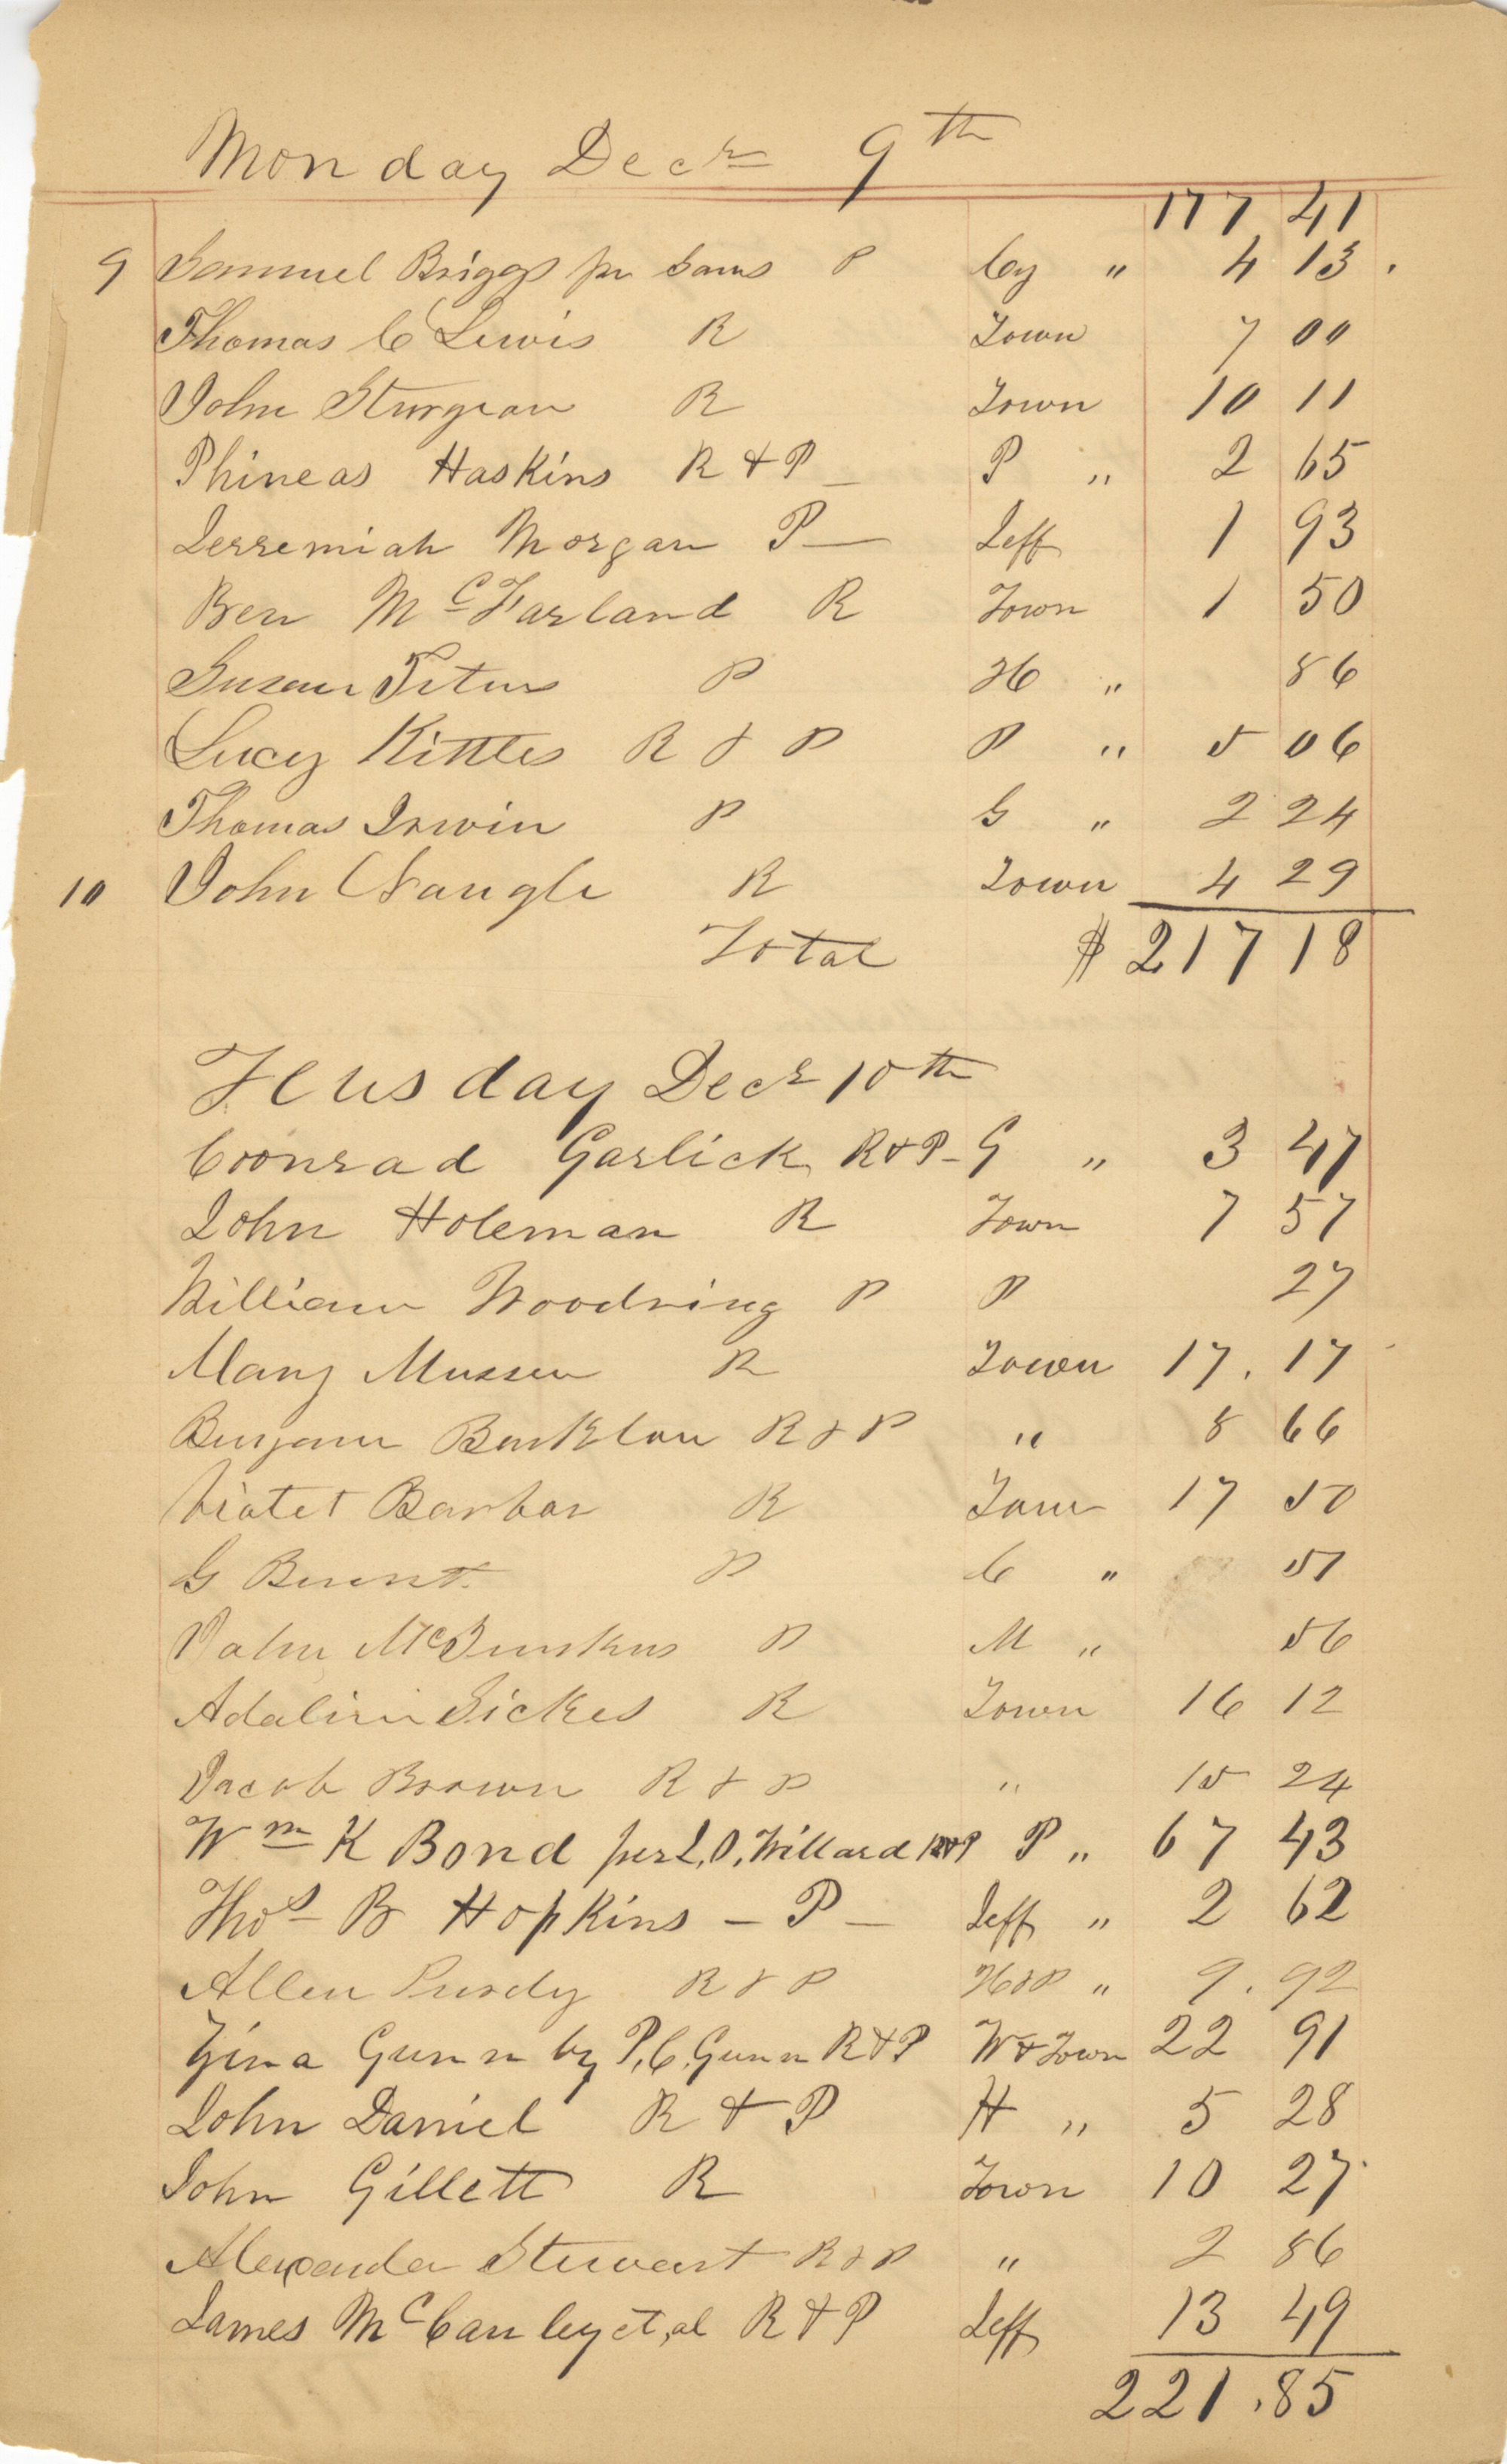 Monday Decr 9th
177 41
9 Samuel Briggs per Sams P Cy " 4 13
Thomas C Lewis R Town 7 00
John Sturgeon R Town 10 11
Phineas Haskins R & P P " 2 65
Jerremiah Morgan P Jeff 1 93
Ben McFarland R Town 1 50
Susan Peters P H " 86
Lucy Kittles R & P P " 5 06
Thomas Irwin P G " 2 24
10 John Naugle R Town 4 29
Total $ 217 18
Teusday Decr 10th
Coonrad Garlick R & P G " 3 47
John Holeman R Town 7 57
William Woodring P P 27
Mary Musser R Town 17. 17
R & P " 8 66
Barbar R Town 17 50
G P C " 51
John P M " 56
Adaline Sickes R Town 16 12
Jacob Brown R & P " 15 24
Wm K Bond per L. D. Willard R&P P " 67 43
Thos B Hopkins - P - Jeff " 2 62
Allen Purdy R & P H&P " 9. 92
Zina Gunn by P. C. Gunn R & P W & Town 22 91
John Daniel R & P H " 5 28
John Gillett R Town 10 27
Alexander Stewart R & P " 2 86
James McCauley et, al R & P Jeff 13 49
221.85